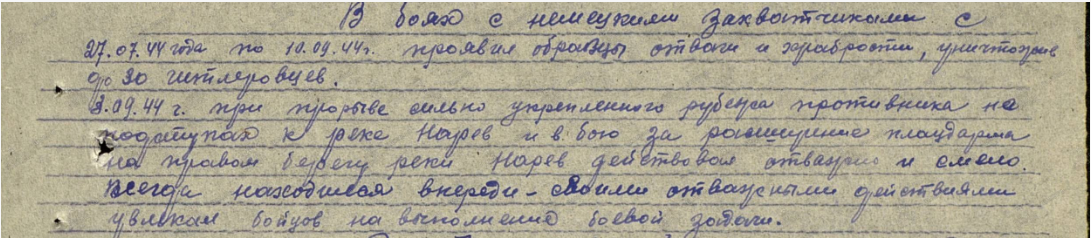 В боях с немецкими захватчиками с
27.07.44 года по 10.09.44 г. проявил образцы отваги и храбрости, уничтожив
до 30 гитлеровцев.
3.09.44 г. при прорыве сильно укрепленного рубежа противника на
подступах к реке Нарев и в бою за расширение плацдарма
на правом берегу реки Нарев действовал отважно и смело.
Всегда находился впереди - своими отважными действиями
увлекал бойцов на выполнение боевой задачи.